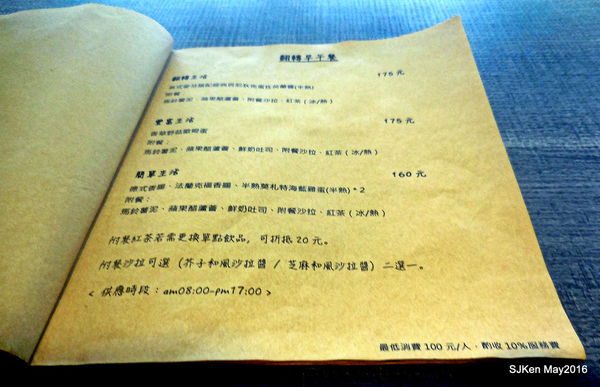 翻轉早午餐
翻轉生活 175 元
附餐
馬鈴薯泥、蘋果醋蘆薈、附餐沙拉、紅茶 ( 冰/熱 )
豐富生活 175 元
附餐：
馬鈴薯泥、蘋果醋蘆薈、鮮奶吐司、附餐沙拉、紅茶 ( 冰/熱 )
簡單生活 160 元
德式香腸、法蘭克福香腸、半熟莫札特海藍雞蛋(半熟) * 2
附餐：
馬鈴薯泥、蘋果醋蘆薈、鮮奶吐司、附餐沙拉、紅茶 ( 冰/熱 )
附餐紅茶若需更換單點飲品，可折抵 20 元。
附餐沙拉可選 ( 芥子和風沙拉醬 / 芝麻和風沙拉醬 ) 二選一。
< 供應時段：am08:00-pm17:00 >
最低消費 100 元/人，酌收 10%服務費
SJKen May2016